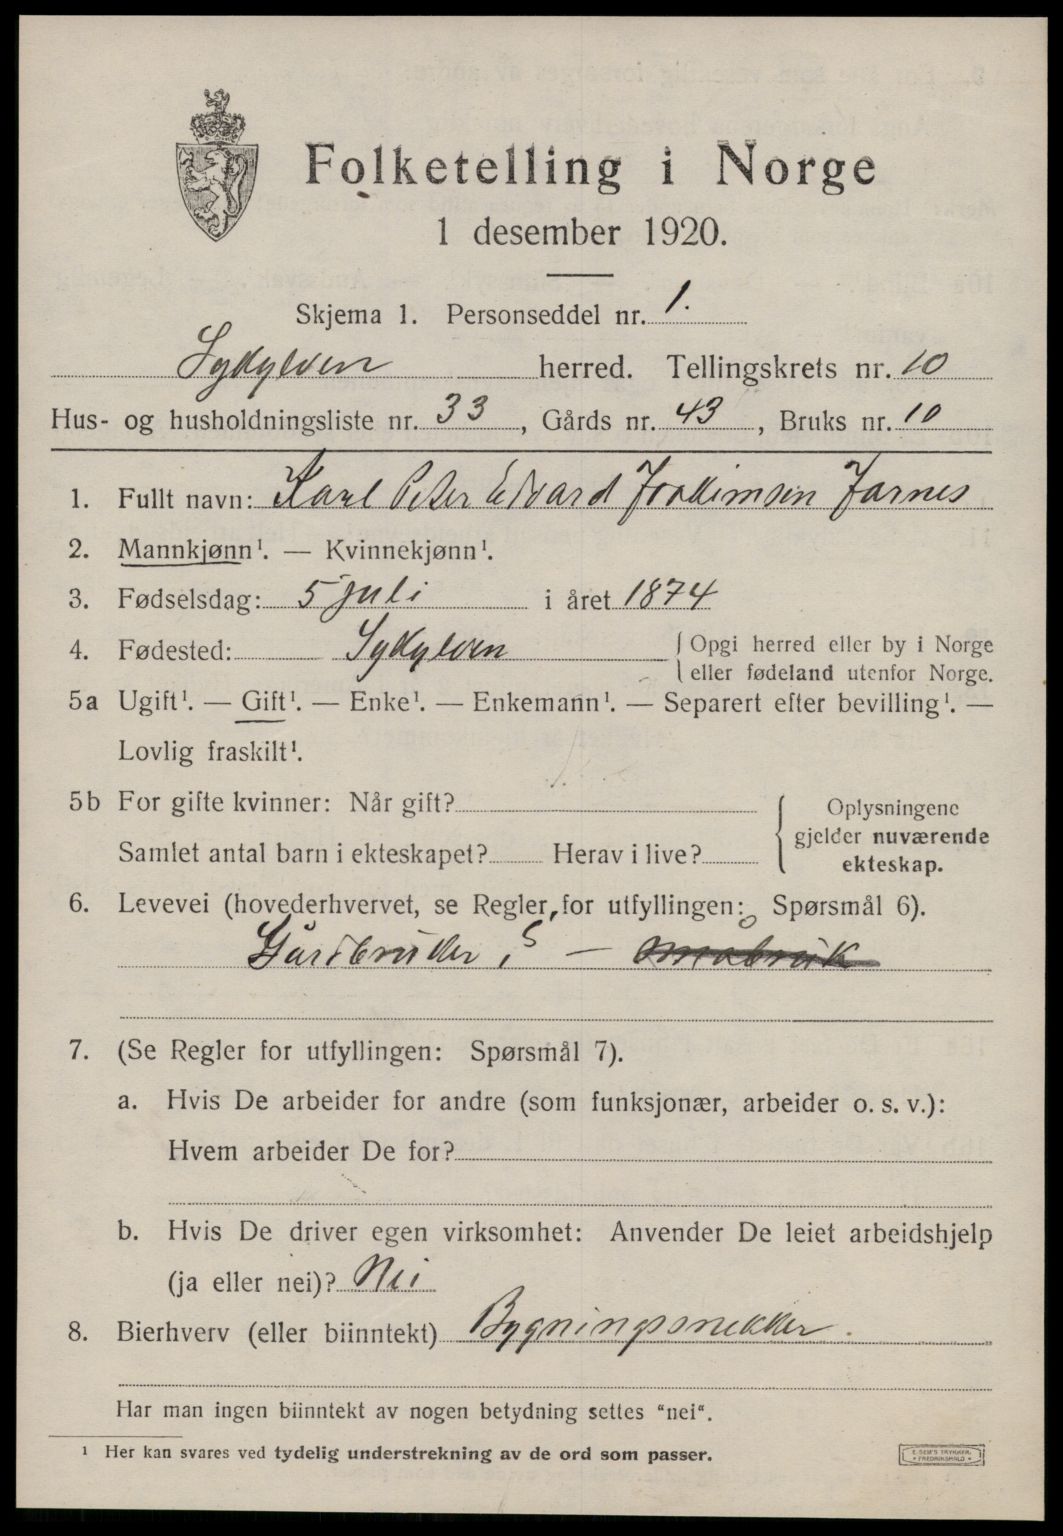 Folketelling i Norge
1 desember 1920.
Skjema 1. Personseddel nr. 1.
Sykylven herred. Tellingskrets nr. 10
Hus- og husholdningsliste nr. 33, Gårds nr. 43, Bruks nr. 10
1. Fullt navn: Karl Peter Edvard Joakimsen Jarnes
2. Mannkjønn¹. — Kvinnekjønn¹.
3. Fødselsdag: 5 juli i året 1874
4. Fødested: Sykylven { Opgi herred eller by i Norge
eller fødeland utenfor Norge.
5a Ugift¹. — Gift¹. — Enke¹. — Enkemann¹. — Separert efter bevilling¹. —
Lovlig fraskilt¹.
5b For gifte kvinner: Når gift? { Oplysningene
gjelder nuværende
Samlet antal barn i ekteskapet? Herav i live? ekteskap.
6. Levevei (hovederhvervet, se Regler for utfyllingen: Spørsmål 6).
Gårdbruker, S — småbruk
7. (Se Regler for utfyllingen: Spørsmål 7).
a. Hvis De arbeider for andre (som funksjonær, arbeider o. s. v.):
Hvem arbeider De for?
b. Hvis De driver egen virksomhet: Anvender De leiet arbeidshjelp
(ja eller nei)? Nei
8. Bierhverv (eller biinntekt) Bygningssnekker.
Har man ingen biinntekt av nogen betydning settes "nei".
¹ Her kan svares ved tydelig understrekning av de ord som passer.
E. SEM'S TRYKKERI,
• FREDRIKSHALD •